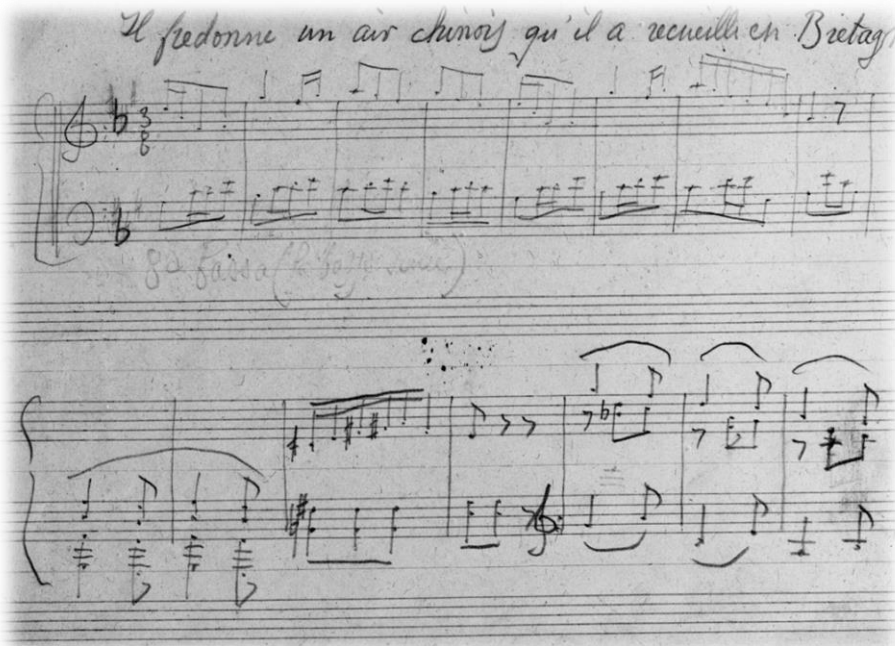 Il fredonne un air chinois qu'il a recueilli en Bretag
3
8
8a bassa (la basse seule)